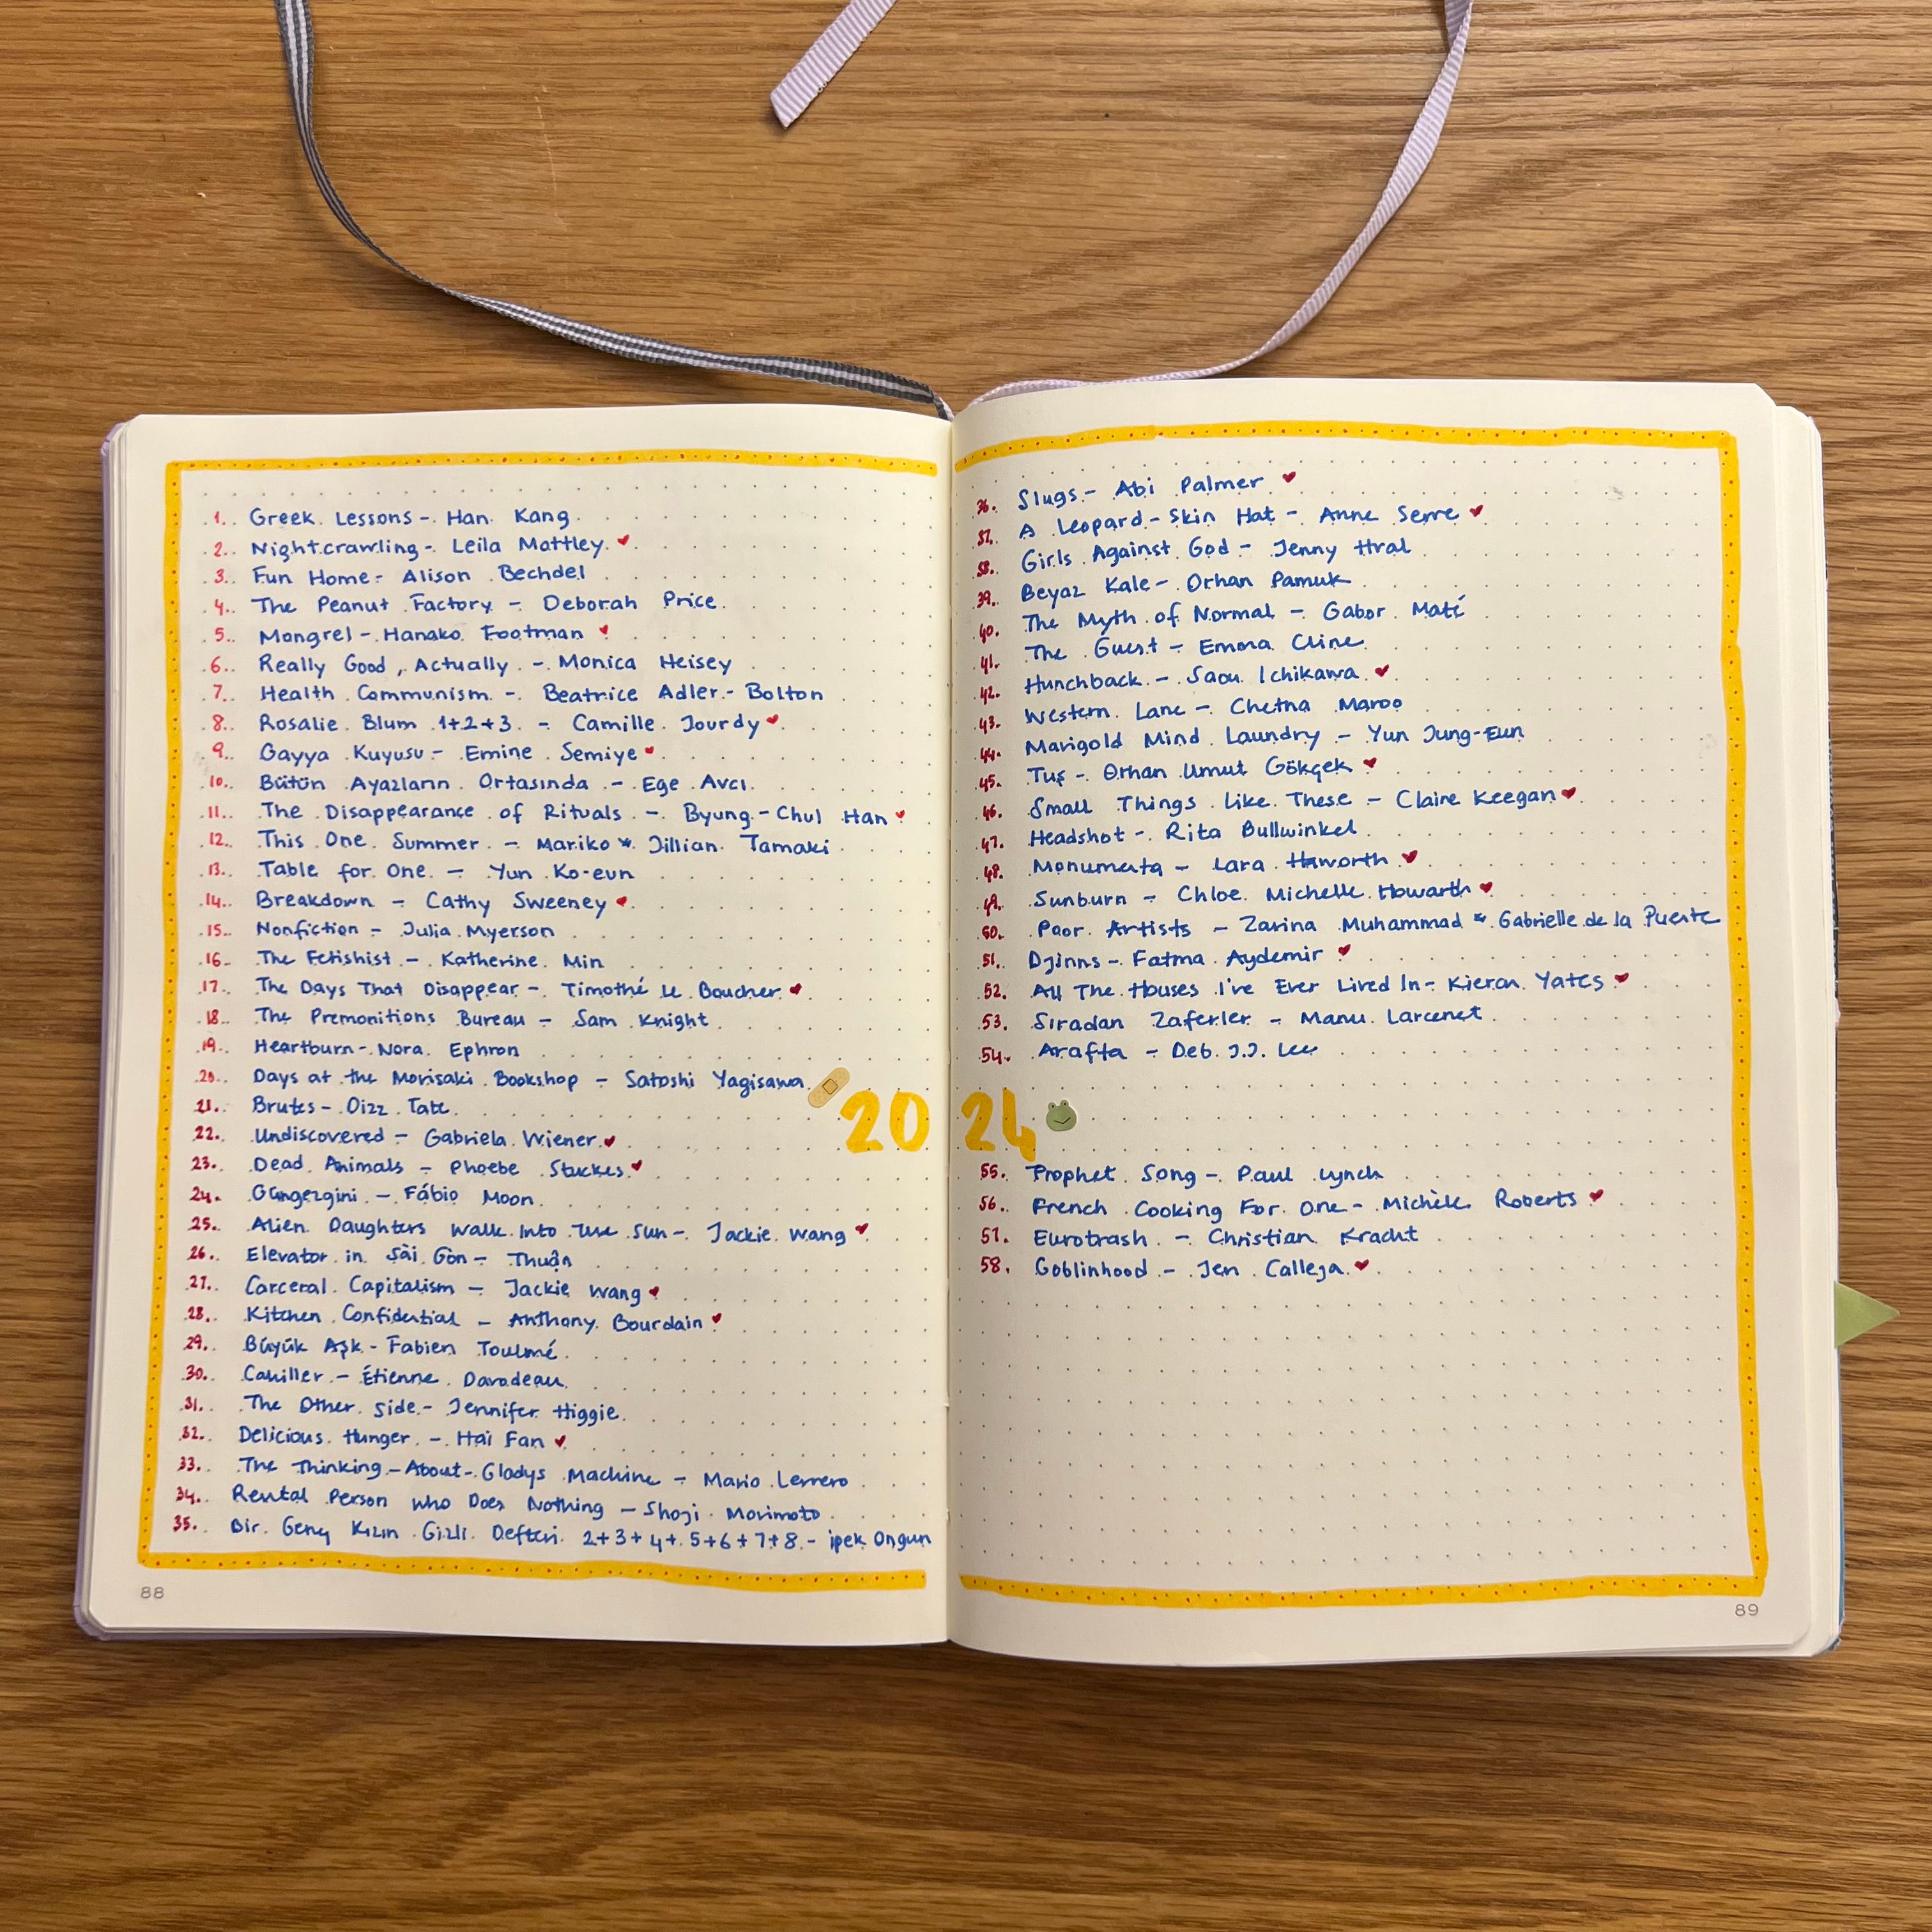 1. Greek Lessons - Han Kang
2. Nightcrawling - Leila Mottley ♥
3. Fun Home - Alison Bechdel
4. The Peanut Factory - Deborah Price
5. Mongrel - Hanako Footman ♥
6. Really Good, Actually - Monica Heisey
7. Health Communism - Beatrice Adler-Bolton
8. Rosalie Blum 1+2+3 - Camille Jourdy ♥
9. Gayya Kuyusu - Emine Semiye ♥
10. Bütün Ayazların Ortasında - Ege Avcı
11. The Disappearance of Rituals - Byung-Chul Han ♥
12. This One Summer - Mariko & Jillian Tamaki
13. Table for One - Yun Ko-eun
14. Breakdown - Cathy Sweeney ♥
15. Nonfiction - Julia Myerson
16. The Fetishist - Katherine Min
17. The Days That Disappear - Timothé Le Boucher ♥
18. The Premonitions Bureau - Sam Knight
19. Heartburn - Nora Ephron
20. Days at the Morisaki Bookshop - Satoshi Yagisawa
21. Brutes - Dizz Tate
22. Undiscovered - Gabriela Wiener ♥
23. Dead Animals - Phoebe Stuckes ♥
24. Güngezgini - Fábio Moon
25. Alien Daughters Walk Into The Sun - Jackie Wang ♥
26. Elevator in Sài Gòn - Thuận
27. Carceral Capitalism - Jackie Wang ♥
28. Kitchen Confidential - Anthony Bourdain ♥
29. Büyük Aşk - Fabien Toulmé
30. Cahiller - Étienne Davodeau
31. The Other Side - Jennifer Higgie
32. Delicious Hunger - Hai Fan ♥
33. The Thinking-About-Gladys Machine - Mario Levrero
34. Rental Person Who Does Nothing - Shoji Morimoto
35. Bir Genç Kızın Gizli Defteri 2+3+4+5+6+7+8 - ipek Ongun
88
2024
36. Slugs - Abi Palmer ♥
37. A Leopard-Skin Hat - Anne Serre ♥
38. Girls Against God - Jenny Hval
39. Beyaz Kale - Orhan Pamuk
40. The Myth of Normal - Gabor Maté
41. The Guest - Emma Cline
42. Hunchback - Saou Ichikawa ♥
43. Western Lane - Chetna Maroo
44. Marigold Mind Laundry - Yun Jung-Eun
45. Tuş - Orhan Umut Gökçek ♥
46. Small Things Like These - Claire Keegan ♥
47. Headshot - Rita Bullwinkel
48. Monumenta - Lara Haworth ♥
49. Sunburn - Chloe Michelle Howarth ♥
50. Poor Artists - Zarina Muhammad & Gabrielle de la Puente
51. Djinns - Fatma Aydemir ♥
52. All The Houses I've Ever Lived In - Kieran Yates ♥
53. Sıradan Zaferler - Manu Larcenet
54. Arafta - Deb J.J. Lee
55. Prophet Song - Paul Lynch
56. French Cooking For One - Michèle Roberts ♥
57. Eurotrash - Christian Kracht
58. Goblinhood - Jen Calleja ♥
89